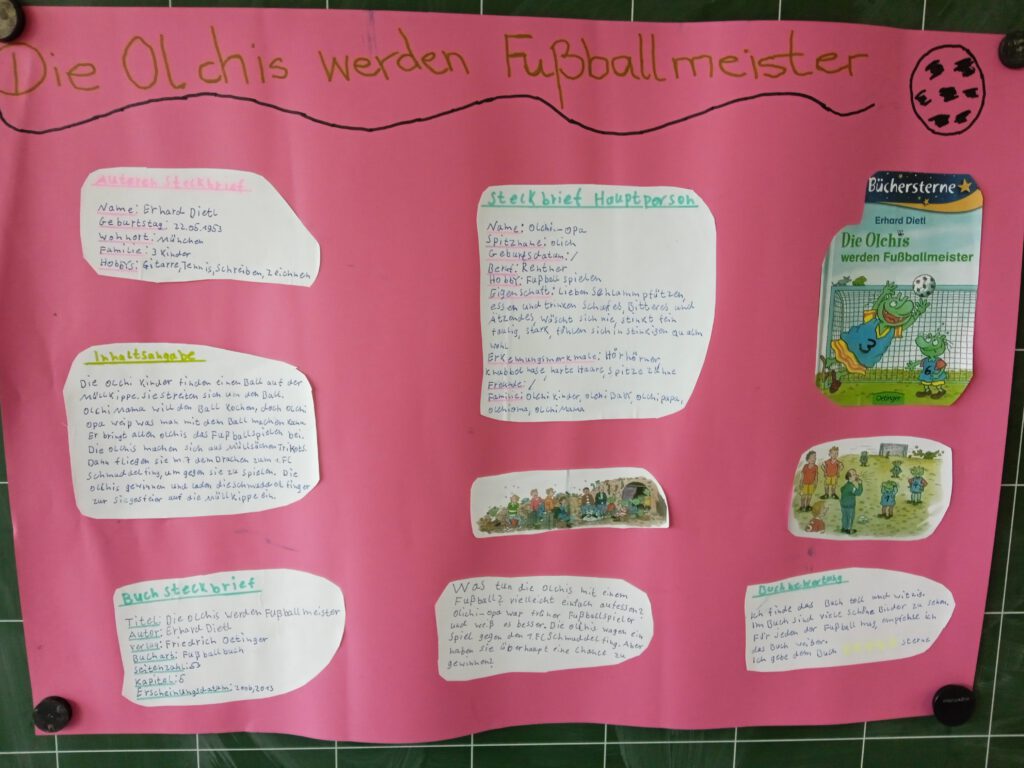 Die Olchis werden Fußballmeister
Autoren Steckbrief
Name: Erhard Dietl
Geburtstag: 22.05.1953
Wohnort: München
Familie: 3 Kinder
Hobbys: Gitarre, Tennis, Schreiben, Zeichnen
Inhaltsangabe
Die Olchi Kinder finden einen Ball auf der
Müllkippe. Sie streiten sich um den Ball.
Olchi Mama will den Ball kochen, doch Olchi
Opa weiß was man mit dem Ball machen kann.
Er bringt allen olchis das Fußballspielen bei.
Die Olchis machen sich aus Müllsäcken Trikots.
Dann fliegen sie mit dem Drachen zum 1.FC
Schmuddelfing, um gegen sie zu spielen. Die
olchis gewinnen und laden die schmuddelfinger
zur Siegesfeier auf die Müllkippe ein.
Buchsteckbrief
Titel: Die Olchis werden Fußballmeister
Autor: Erhard Dietl
Verlag: Friedrich Oetinger
Buchart: Fußballbuch
Seitenzahl:
Kapitel:
Erscheinungsdatum: 2006, 2013
Steckbrief Hauptperson
Name: Olchi-opa
Spitzname: olich
Geburtsdatum: /
Beruf: Rentner
Hobby: Fußball spielen
Eigenschaft: Lieben Schlammpfützen,
essen und trinken Scharfes, Bitteres und
Ätzendes, wäscht sich nie, stinkt fein
faulig, stark, fühlen sich in stinkigen Qualm
wohl
Erkennungsmerkmale: Hörhörner
Knubbelnase harte Haare, Spitze Zähne
Freunde: /
Familie: Olchi Kinder, olchi Baby, olchi papa,
olchi oma, olchi Mama
Was tun die Olchis mit einem
Fußball? vielleicht einfach aufessen?
Olchi-opa war früher Fußballspieler
und weiß es besser. Die olchis wagen ein
Spiel gegen den 1.FC Schmuddelfing. Aber
haben sie überhaupt eine Chance zu
gewinnen?
Büchersterne
Erhard Dietl
Die Olchis
werden Fußballmeister
3
6
Oetinger
Buchbewertung
Ich finde das Buch toll und witzig.
Im Buch sind viele schöne Bilder zu sehen.
Für jeden der Fußball mag, empfehle ich
das Buch weiter.
Ich gebe dem Buch Sterne